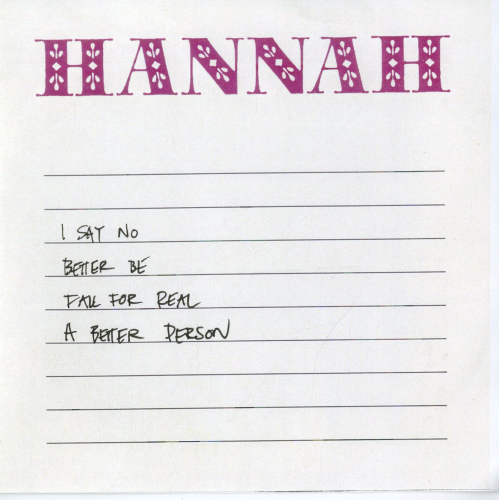 HANNAH
I SAY NO
BETTER BE
FALL FOR REAL
A BETTER PERSON